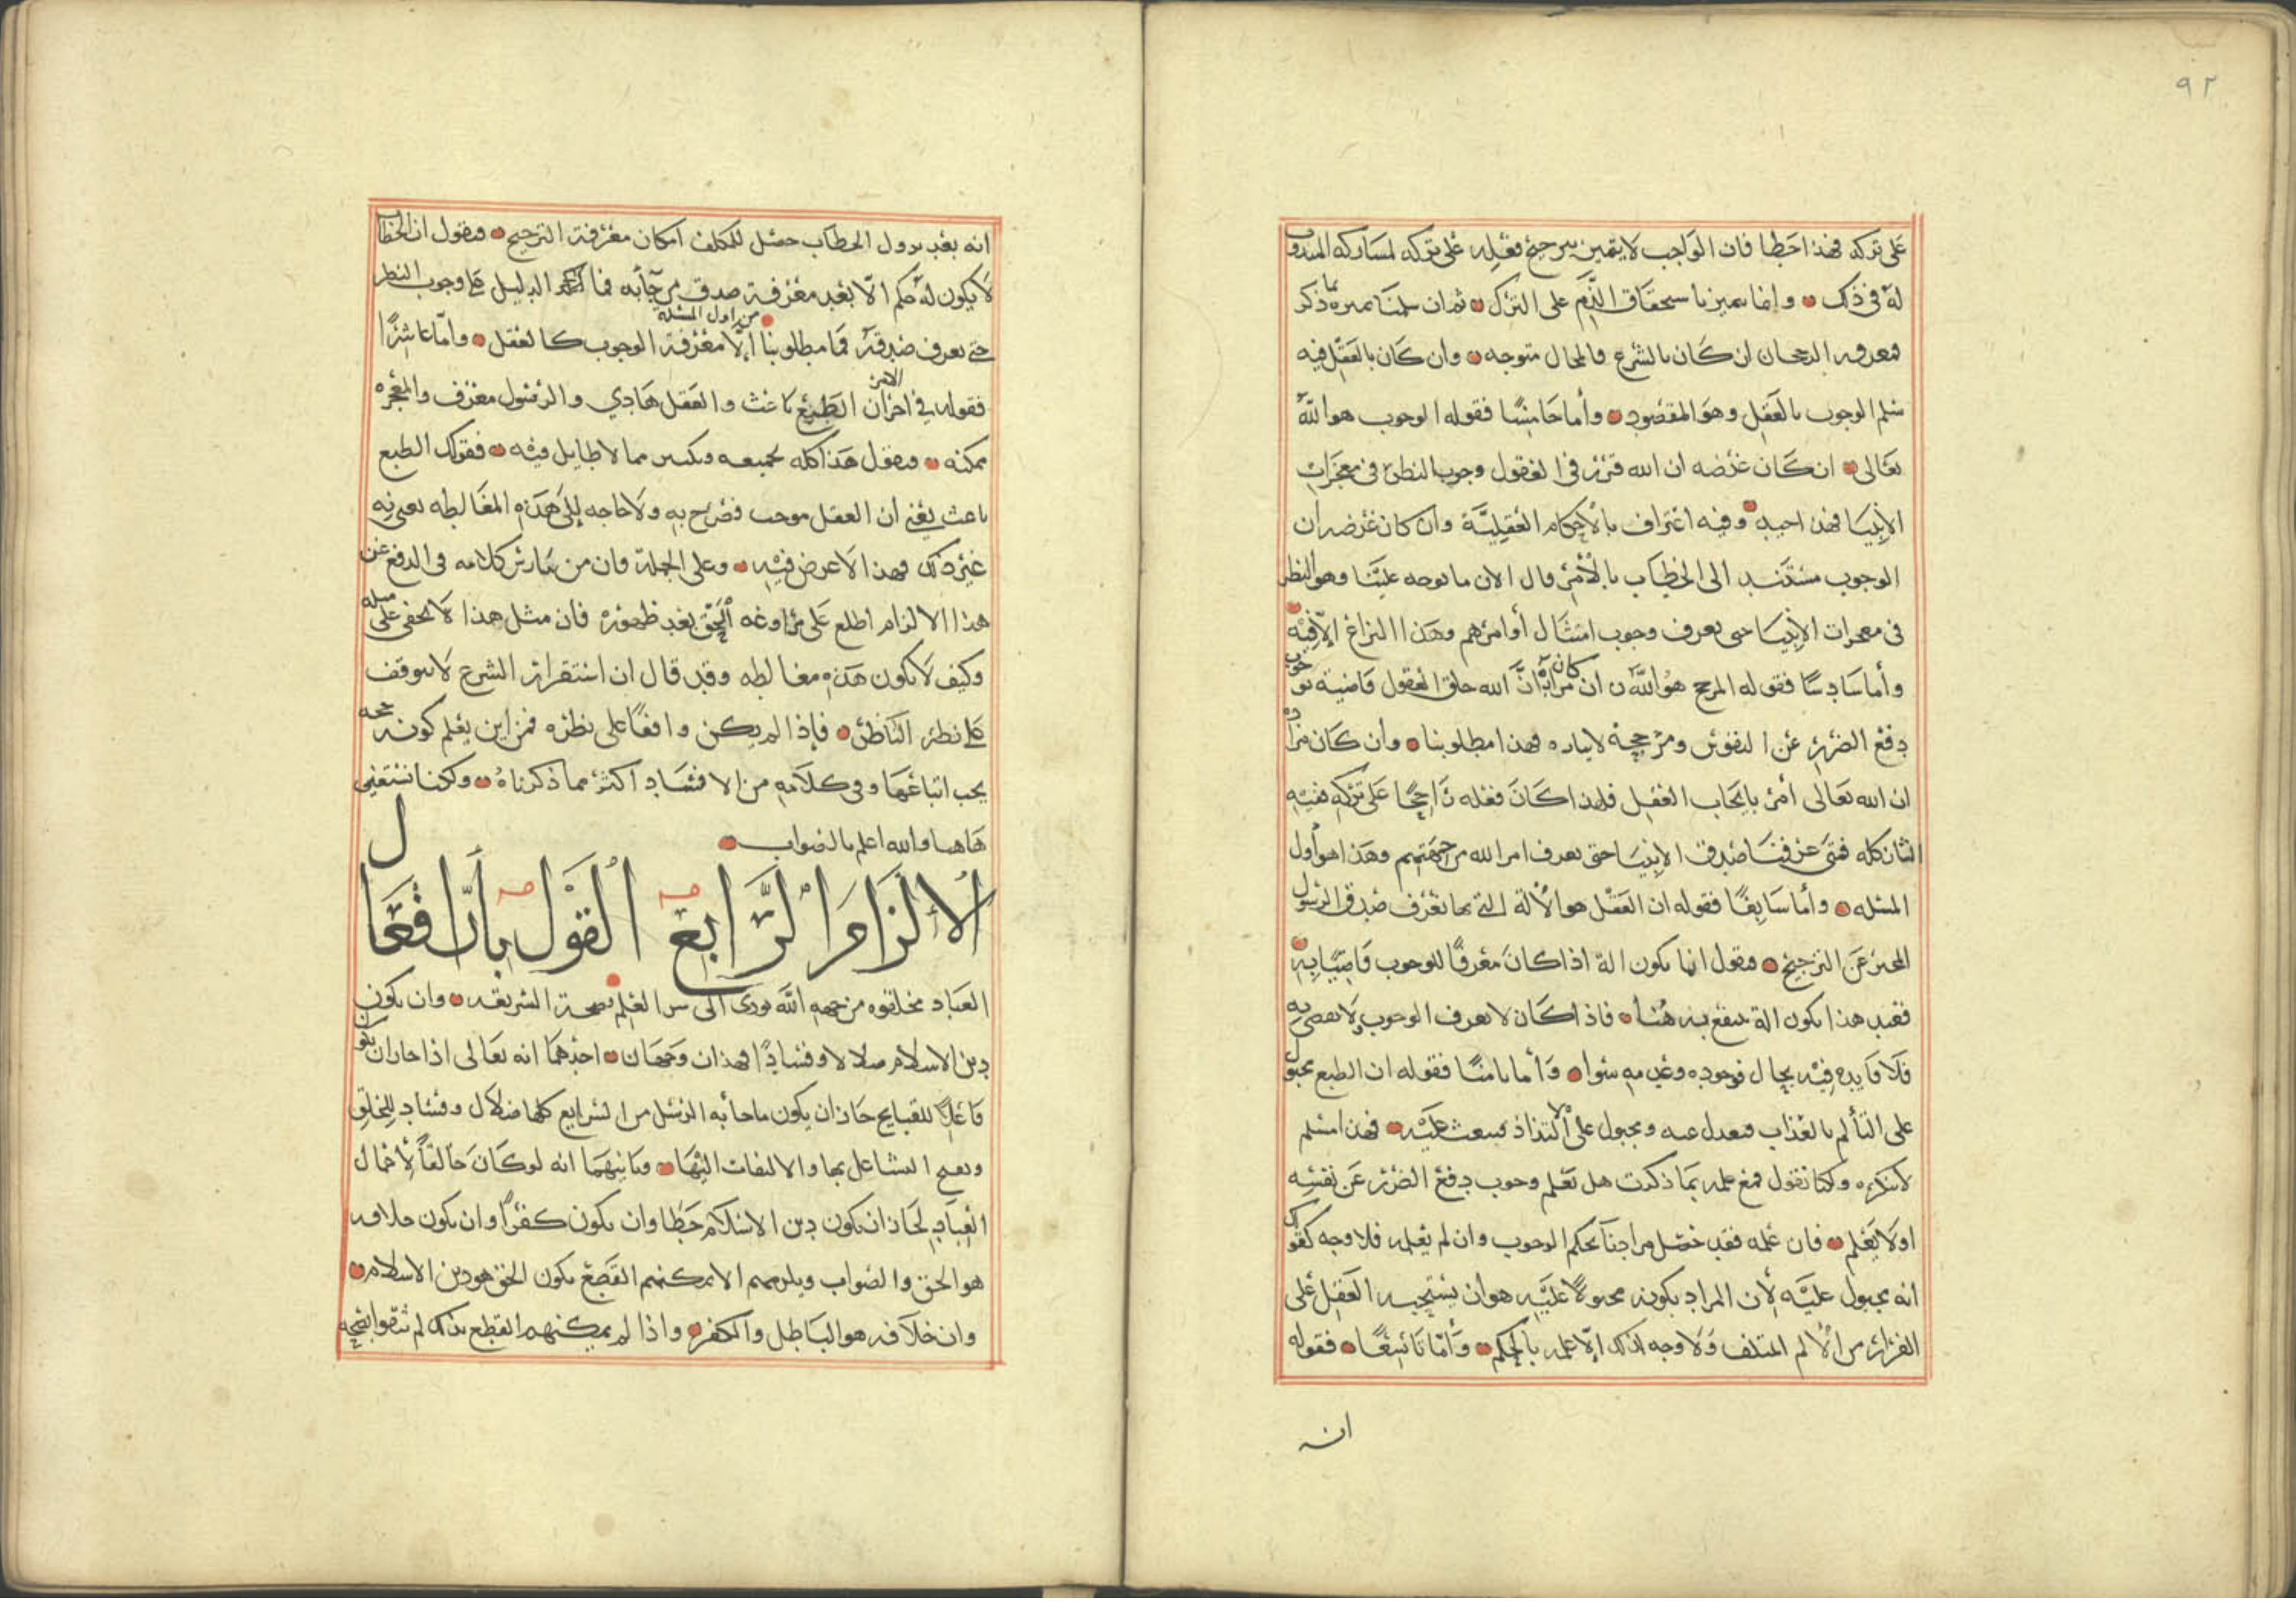 ٩٢
على تركه فهذا احطا فان الواجب لا يتميز بترجيح فعله على تركه لمشاركه المندوب
له في ذلك وانما يتميز باستحقاق الذم على الترك ثم ان سلمنا تميزه بما ذكر
فمعرفه الرجحان ان كان بالشرع فالمحال متوجه وان كان بالعقل فيه
سلم الوجوب بالعقل وهو المقصود وأما خامسًا فقوله الوجوب هو الله
تعالى ان كان غرضه ان الله قرر في العقول وجوب النظر في معجزات
الانبيا فهذا وفيه اعتراف بالأحكام العقلية وان كان غرضه ان
الوجوب مستند الى الخطاب بالأمر قال الان ما توجه علينا وهو النظر
في معجزات الانبيا حتى يعرف وجوب امتثال أوامرهم وهذا النزاع الا فيه
وأما سادسًا فقوله المرجح هو الله ان كان مراده أنّ الله خلق العقول قاضية بوجوب
دفع الضرر عن النفوس ومرجحة لايثاره فهذا مطلوبنا وان كان مراده
ان الله تعالى أمر بايجاب الفعل فلهذا كان فعله راجحًا على تركه ففيه
الشان كله فمتى عرفنا صدق الانبيا حتى يعرف امر الله من جهتهم وهذا هو أول
المسئله وأما سابعًا فقوله ان العقل هو الألة التي بها تعرف صدق الرسول
المخبر عن الترجيح فنقول انما يكون الة اذا كان معرفًا للوجوب قاضيًا به
فعند هذا يكون الة ينتفع به هنا فاذا كان لا يعرف الوجوب ولا يقضي به
فلا فايده فيه بحال فوجوده وعدمه سوا وأما ثامنًا فقوله ان الطبع مجبول
على التألم بالعذاب فيعدل عنه ومجبول على الالتذاذ فينبعث عليه فهذا مسلم
لا ننكره ولكنا نقول فمع علمه بما ذكرت هل تعلم وجوب دفع الضرر عن نفسه
او لا يعلم فان علمه فقد حصل مرادنا بحكم الوجوب وان لم يعلمه فلا وجه لقولك
انه مجبول عليه لأن المراد بكونه مجبولًا عليه هو ان يستحثه العقل على
الفرار من الألم المتلف ولا وجه لذلك إلا علمه بالحكم وأما تاسعًا فقوله
انه
انه بعد نزول الخطاب حصل للمكلف امكان معرفة الترجيح فنقول ان الخطاب
لا يكون له حكم الا بعد معرفة صدق من جآء به فما الدليل على وجوب النظر
من اول المسئله
حتى يعرف صدقه فما مطلوبنا إلا معرفة الوجوب كالعقل وأما عاشرًا
فقوله في اخر الامر ان الطبع باعث والعقل هادي والرسول معرف والمعجزه
ممكنه فنقول هذا كله مما لا طايل فيه فقولك الطبع
باعث يعني أن العقل موجب فصرح به ولا حاجه إلى هذه المغالطه
غير ذلك فهذا لا غرض فيه وعلى الجملة فان من مارس كلامه في الدفع عن
هذا الالزام اطلع على مراوغه الحق بعد ظهوره فان مثل هذا لا يخفى على مثله
وكيف لا يكون هذه مغالطه وقد قال ان استقرار الشرع لا يتوقف
على نظر الناظر فإذا لم يكن واقفًا على نظره فمن اين يعلم كونه حجه
يجب اتباعها وفي كلامه من الافساد اكثر مما ذكرناه ولكنا نستغني
هاهنا والله اعلم بالصواب
الالزام الرابع القول بأنّ افعال
العباد مخلوقه من جهه الله يؤدى الى سد العلم بصحة الشريعه وان يكون
دين الاسلام ضلالا وفسادًا فهذان وجهان احدهما انه تعالى اذا جاز ان يكون
فاعلًا للقبايح جاز ان يكون ما جا به الرسل من الشرايع كلها ضلال وفساد للخلق
ويصح التشاغل بها والالتفات اليها وثانيهما انه لو كان خالقًا لأفعال
العباد لجاز ان يكون دين الاسلام خطا وان يكون كفرًا وان يكون خلافه
هو الحق والصواب ويلزمهم الا يمكنهم القطع بكون الحق هو دين الاسلام
وان خلافه هو الباطل والكفر واذا لم يمكنهم القطع بذلك لم يثقوا بصحه